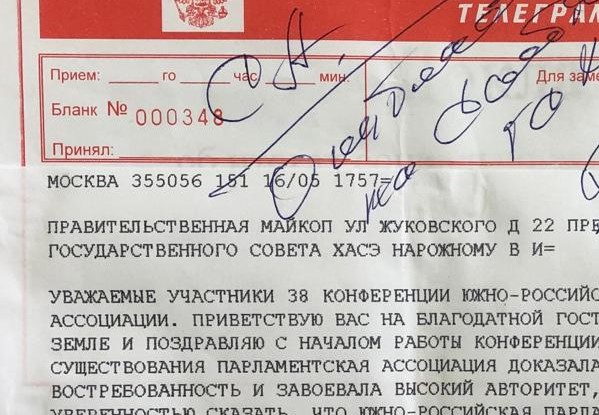 ТЕЛЕГРАМ
Прием: го час. мин.
Для заме
Бланк № 000348
Принял:
МОСКВА 355056 151 16/05 1757=
ПРАВИТЕЛЬСТВЕННАЯ МАЙКОП УЛ ЖУКОВСКОГО Д 22 ПРЕ
ГОСУДАРСТВЕННОГО СОВЕТА ХАСЭ НАРОЖНОМУ В И=
УВАЖАЕМЫЕ УЧАСТНИКИ 38 КОНФЕРЕНЦИИ ЮЖНО-РОССИЙС
АССОЦИАЦИИ. ПРИВЕТСТВУЮ ВАС НА БЛАГОДАТНОЙ ГОСТ
ЗЕМЛЕ И ПОЗДРАВЛЯЮ С НАЧАЛОМ РАБОТЫ КОНФЕРЕНЦИИ
СУЩЕСТВОВАНИЯ ПАРЛАМЕНТСКАЯ АССОЦИАЦИЯ ДОКАЗАЛА
ВОСТРЕБОВАННОСТЬ И ЗАВОЕВАЛА ВЫСОКИЙ АВТОРИТЕТ,
УВЕРЕННОСТЬЮ СКАЗАТЬ, ЧТО ЮЖНО-РОССИЙСКАЯ ПАРЛА